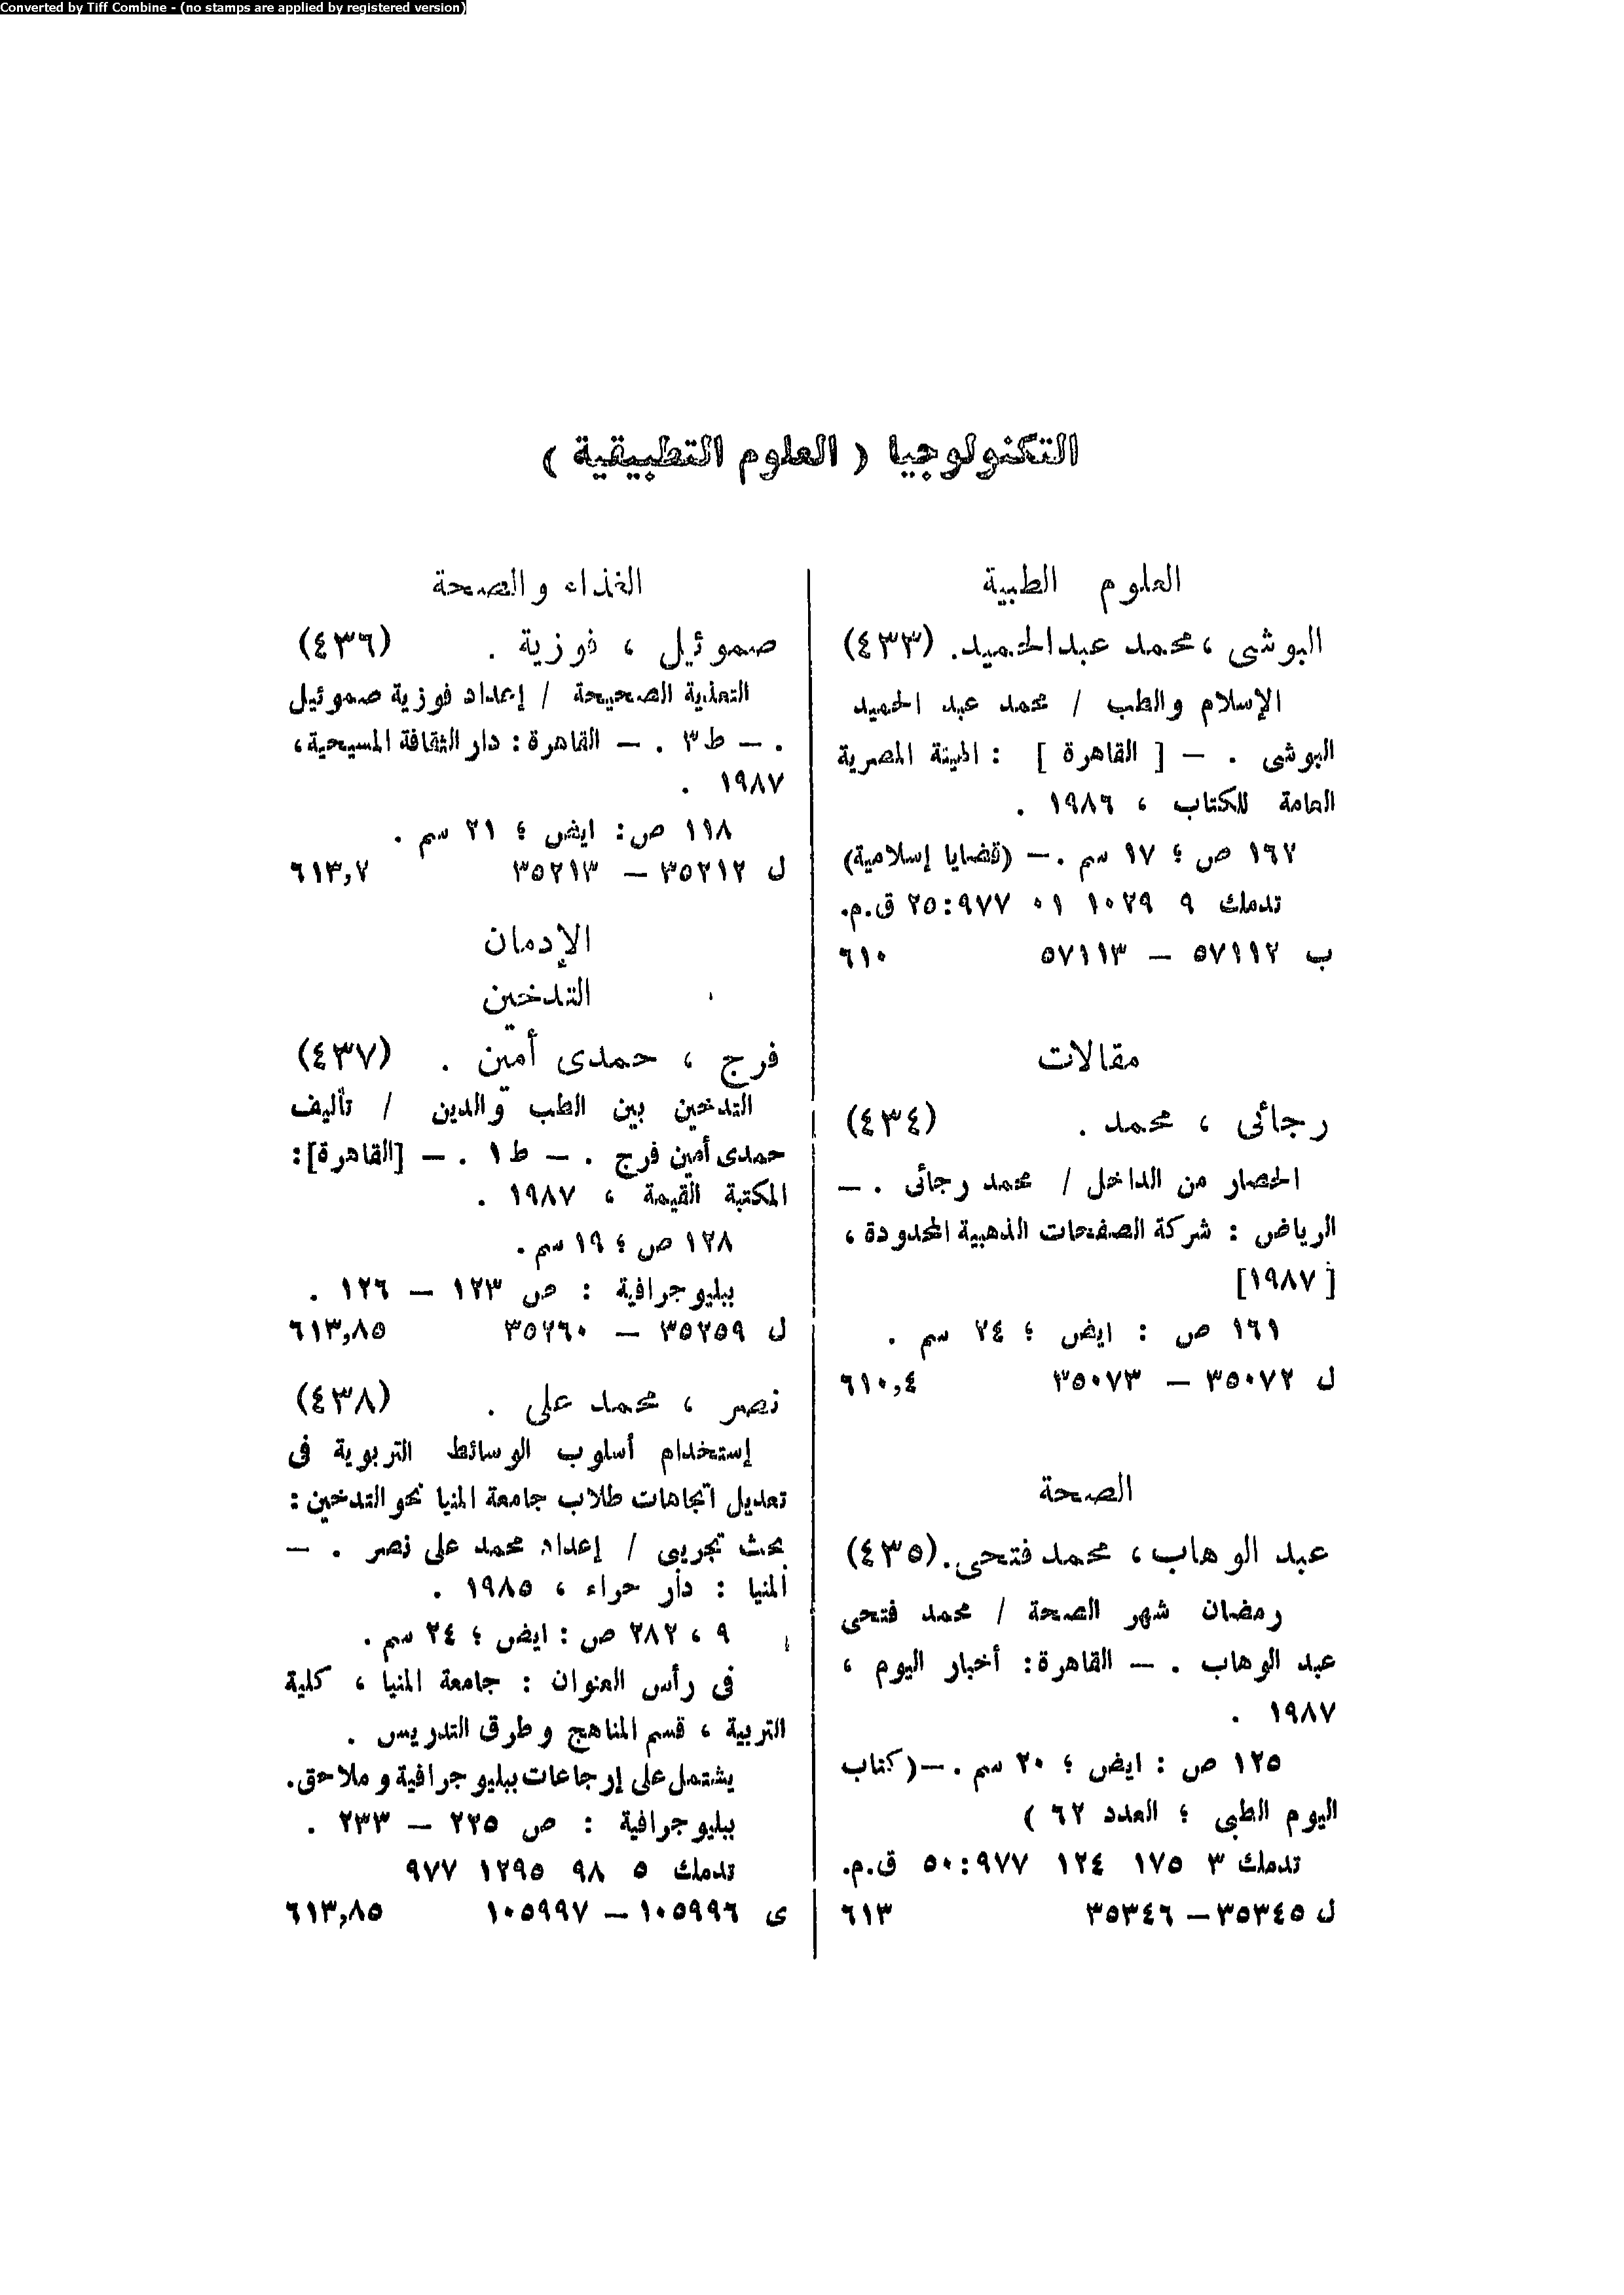 Converted by Tiff Combine - (no stamps are applied by registered version)
التكنولوجيا ( العلوم التطبيقية )
العلوم الطبية
البوشى ، محمد عبدالحميد. (٤٣٣)
الإسلام والطب / محمد عبد الحميد
البوشى . — [ القاهرة ] : الهيئة المصرية
العامة للكتاب ، ١٩٨٦ .
١٦٧ ص ؛ ١٧ سم .— (قضايا إسلامية)
تدمك ٩ ١٠٢٩ ٠١ ٩٧٧:٢٥ ق.م.
ب ٥٧١١٢ — ٥٧١١٣ ٦١٠
مقالات
رجائى ، محمد . (٤٣٤)
الحصار من الداخل / محمد رجائى . —
الرياض : شركة الصفحات الذهبية المحدودة ،
[١٩٨٧]
١٦١ ص : ايض ؛ ٢٤ سم .
ل ٣٥٠٧٢ — ٣٥٠٧٣ ٦١٠,٤
الصحة
عبد الوهاب ، محمد فتحى. (٤٣٥)
رمضان شهر الصحة / محمد فتحى
عبد الوهاب . — القاهرة : أخبار اليوم ،
١٩٨٧ .
١٢٥ ص : ايض ؛ ٢٠ سم .—(كتاب
اليوم الطبى ؛ العدد ٦٢ )
تدمك ٣ ١٧٥ ١٢٤ ٩٧٧:٥٠ ق.م.
ل ٣٥٣٤٥ — ٣٥٣٤٦ ٦١٣
الغذاء والصحة
صموئيل ، فوزية . (٤٣٦)
التغذية الصحيحة / إعداد فوزية صموئيل
. — ط٣ . — القاهرة : دار الثقافة المسيحية ،
١٩٨٧ .
١١٨ ص : ايض ؛ ٢١ سم .
ل ٣٥٢١٢ — ٣٥٢١٣ ٦١٣,٢
الإدمان
التدخين
فرج ، حمدى أمين . (٤٣٧)
التدخين بين الطب والدين / تأليف
حمدى أمين فرج . — ط١ . — [القاهرة] :
المكتبة القيمة ، ١٩٨٧ .
١٢٨ ص ؛ ١٩ سم .
ببليوجرافية : ص ١٢٣ — ١٢٦ .
ل ٣٥٢٥٩ — ٣٥٢٦٠ ٦١٣,٨٥
نصر ، محمد على . (٤٣٨)
إستخدام أسلوب الوسائط التربوية فى
تعديل اتجاهات طلاب جامعة المنيا نحو التدخين :
بحث تجريبى / إعداد محمد على نصر . —
المنيا : دار حراء ، ١٩٨٥ .
٩ ، ٢٨٢ ص : ايض ؛ ٢٤ سم .
فى رأس العنوان : جامعة المنيا ، كلية
التربية ، قسم المناهج وطرق التدريس .
يشتمل على إرجاعات ببليوجرافية وملاحق.
ببليوجرافية : ص ٢٢٥ — ٢٣٣ .
تدمك ٥ ٩٨ ١٢٩٥ ٩٧٧
ى ١٠٥٩٩٦ — ١٠٥٩٩٧ ٦١٣,٨٥